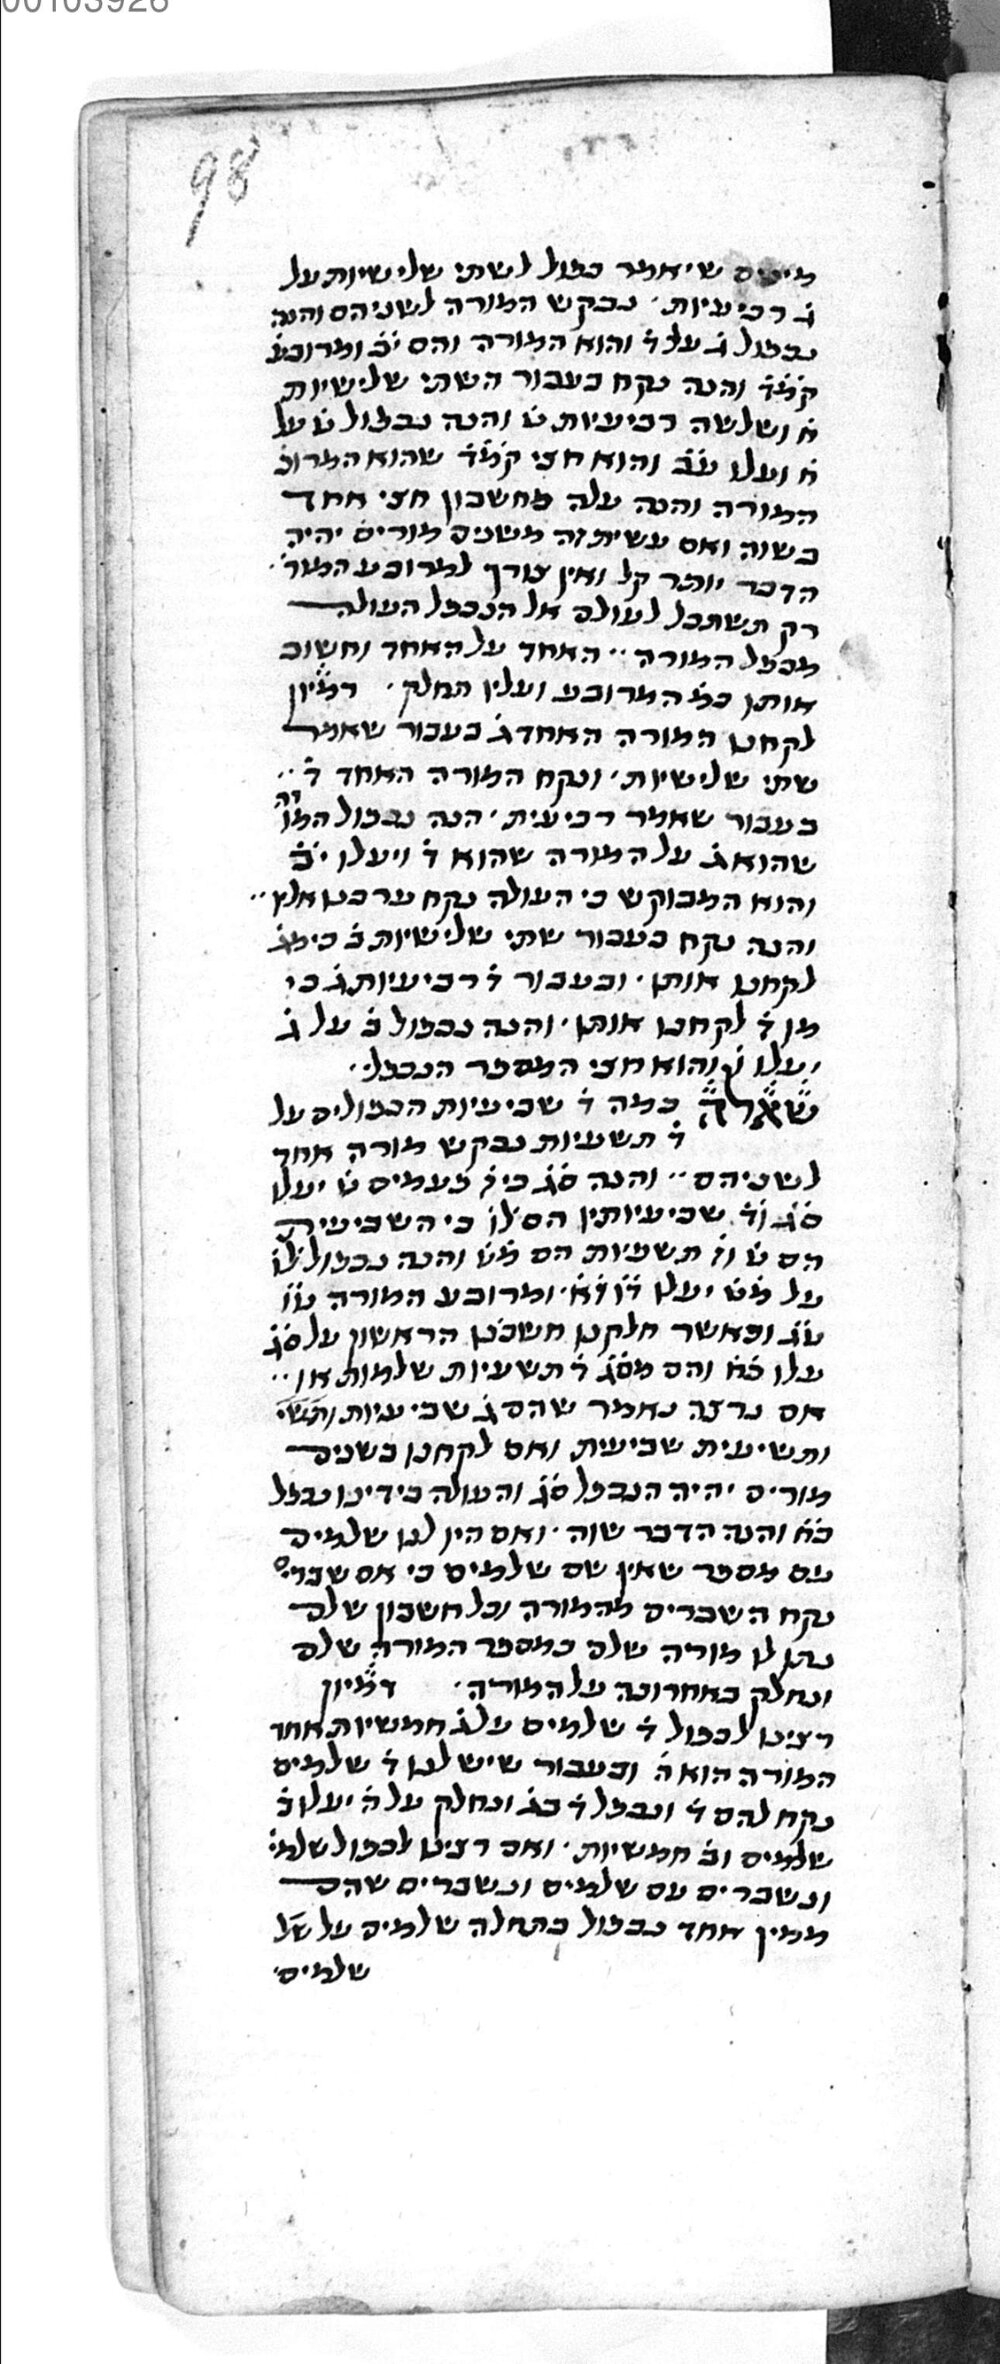 00103926
98
מינים שיאמר כפול לשתי שלישיות על
ג̇ רביעיות ּ נבקש המורה לשניהם והנה
נכפול ג̇ על ד̇ והוא המורה והם י̇ב̇ ומרובע
ק̇מ̇ד̇ והנה נקח בעבור השתי שלישיות
ח̇ ושלשה רביעיות ט̇ והנה נכפול ט̇ על
ח̇ ועלו ע̇ב̇ והוא חצי ק̇מ̇ד̇ שהוא המרוב̇
המורה והנה עלה מחשבון חצי אחד
בשוה ואם עשית זה משנים מורים יהיה
הדבר יותר קל ואין צורך למרובע המור̇
רק תשתכל לעולם אל הנכפל העולה
מכפל המורה ּּ האחד על האחד וחשוב
אותן כמ̇ המרובע ועליו תחלק ּ דמיון
לקחנו המורה האחד ג̇ בעבור שאמר
שתי שלישיות ּ ונקח המורה האחד ד̇ ּּ
בעבור שאמר רביעית ּ הנה נכפול המורה
שהוא ג̇ על המורה שהוא ד̇ ויעלו י̇ב̇
והוא המבוקש כי העולה נקח ערכנו אליו ּּ
והנה נקח בעבור שתי שלישיות ב̇ כי מג̇
לקחנו אותן ּ ובעבור ד̇ רביעיות ג̇ כי
מן ד̇ לקחנו אותן ּ והנה נכפול ב̇ על ג̇
יעלו ו̇ והוא חצי המספר הנכפל ּ
שארה כמה ד̇ שביעיות הכפולים על
ד̇ תשעיות נבקש מורה אחד
לשניהם ּּ והנה ס̇ג̇ כי ז̇ פעמים ט̇ יעלו
ס̇ג̇ וד̇ שביעיותיו הם ל̇ו̇ כי השביעית
הם ט̇ וז̇ תשעיות הם מ̇ט̇ והנה נכפול ל̇ו̇
על מ̇ט̇ יעלו
ע̇ג̇ וכאשר חלקנו חשבנו הראשון על ס̇ג̇
עלו כ̇ח̇ והם מס̇ג̇ ד̇ תשעיות שלמות או ּּ
אם נרצה נאמר שהם ג̇ שביעיות ותשי̇
ותשיעית שביעית ואם לקחנו בשנים
מורים יהיה הנכפל ס̇ג̇ והעולה בידינו נכפל
כ̇ח̇ והנה הדבר שוה ּ ואם היו לנו שלמים
עם מספר שאין שם שלמים כי אם שברים
נקח השברים מהמורה וכל חשבון שלם
נתן לו מורה שלם כמספר המורה שלם
ונחלק באחרונה על המורה ּ דמיון
רצינו לכפול ד̇ שלמים על ג̇ חמשיות אחד
המורה הוא ה̇ ובעבור שיש לנו ד̇ שלמים
נקח להם ד̇ ונכפל ד̇ בג̇ ונחלק על ה̇ יעלו ב̇
שלמים וב̇ חמשיות ּ ואם רצינו לכפול שלמי̇
ונשברים עם שלמים ונשברים שהם
ממין אחד נכפול בתחלה שלמים על של
שלמים ּ